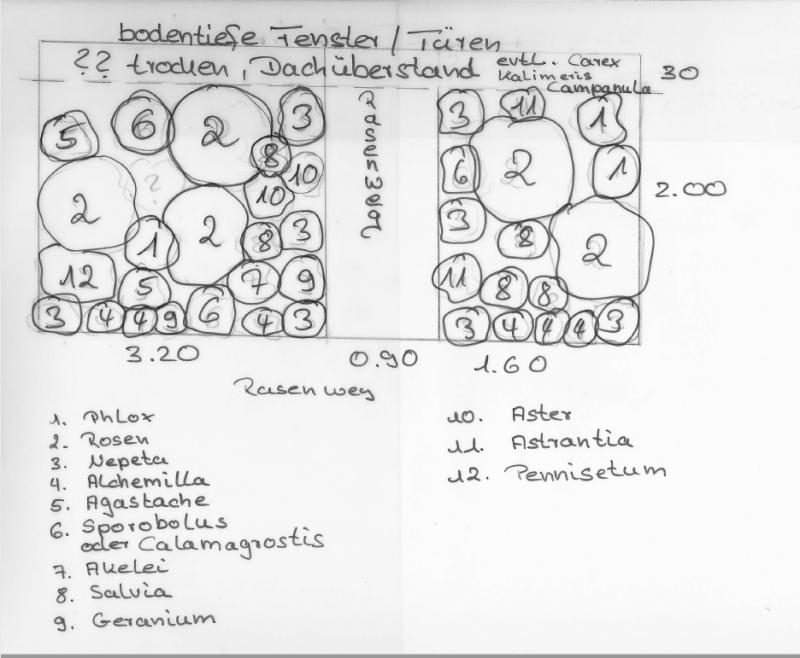 bodentiefe Fenster / Türen
?? trocken, Dachüberstand evtl. Carex
Kalimeris
Campanula
30
5 6 2 3
8
10
10
?
2
1
2
8 3
12
5
7 9
3 4 4 9 6 4 3
Rasenweg
3 11 1
6 2 1
3
8
2
11
8 8
3 4 4 4 3
2.00
3.20
0.90
1.60
Rasenweg
1. Phlox
2. Rosen
3. Nepeta
4. Alchemilla
5. Agastache
6. Sporobolus
oder Calamagrostis
7. Akelei
8. Salvia
9. Geranium
10. Aster
11. Astrantia
12. Pennisetum